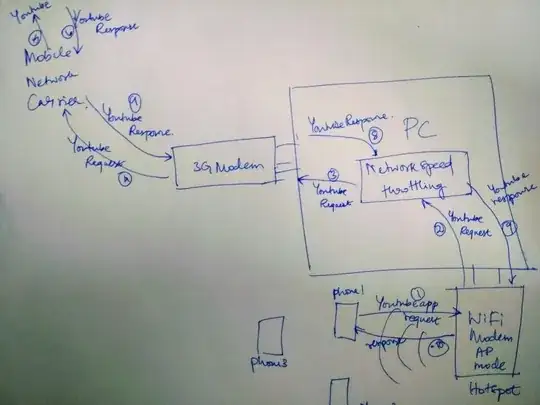 Youtube
Youtube
Response
5
6
Mobile
Network
Carrier
7
Youtube
Response
Youtube
Request
4
3G Modem
PC
Youtube Response
8
Network Speed
throttling
3
Youtube
Request
Youtube
response
9
2
Youtube
Request
phone1
1
Youtube app
request
response
10
WiFi
Modem
AP
mode
Hotspot
phone3